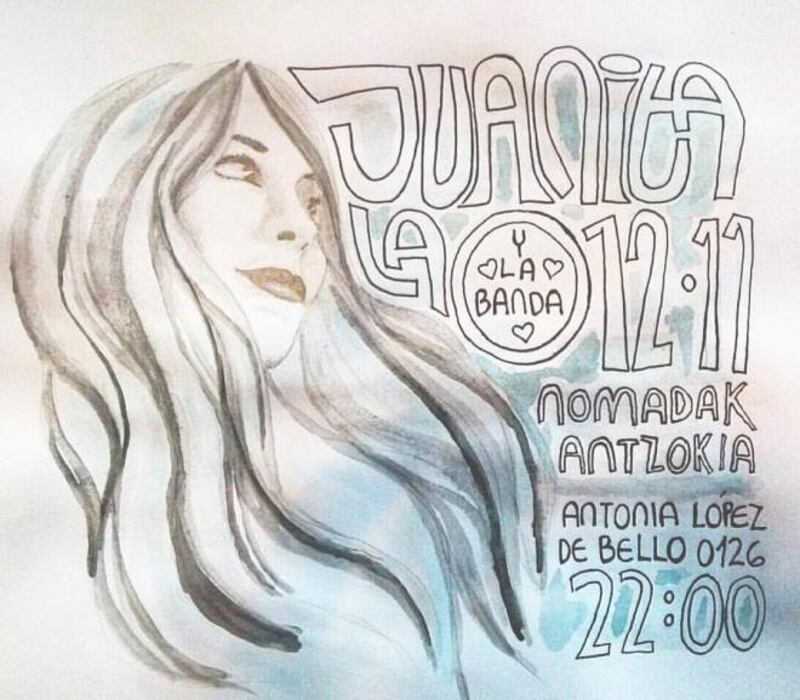 JUANITA
LA
Y
LA
BANDA
12·11
NOMADAK
ANTZOKIA
ANTONIA LÓPEZ
DE BELLO 0126
22:00